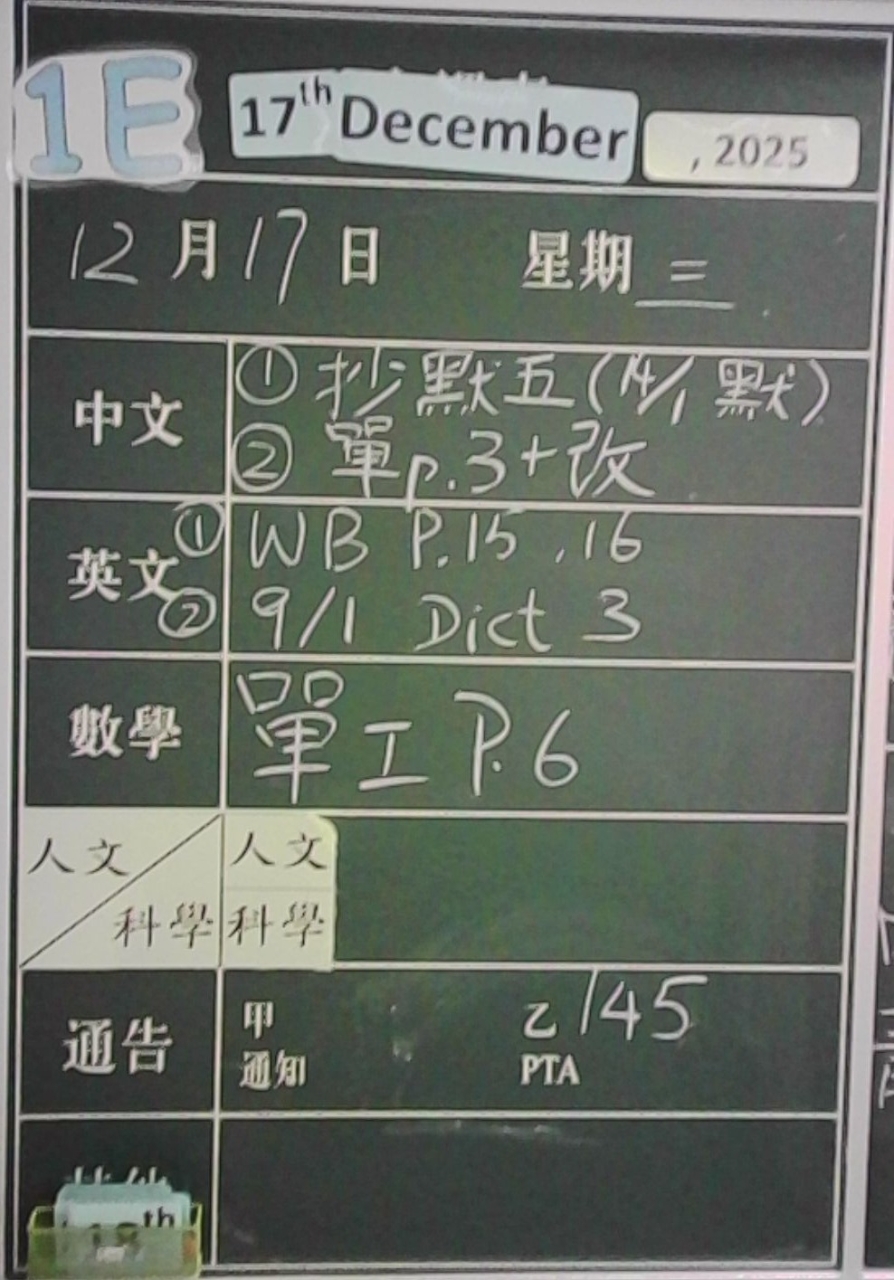 1E 17th December , 2025
12月17日 星期三
中文 ① 抄默五(14/1默)
② 單p.3+改
英文 ① WB P.15 ,16
② 9/1 Dict 3
數學 單工 P.6
人文 人文
科學 科學
通告 甲 乙145
通知 PTA
18th